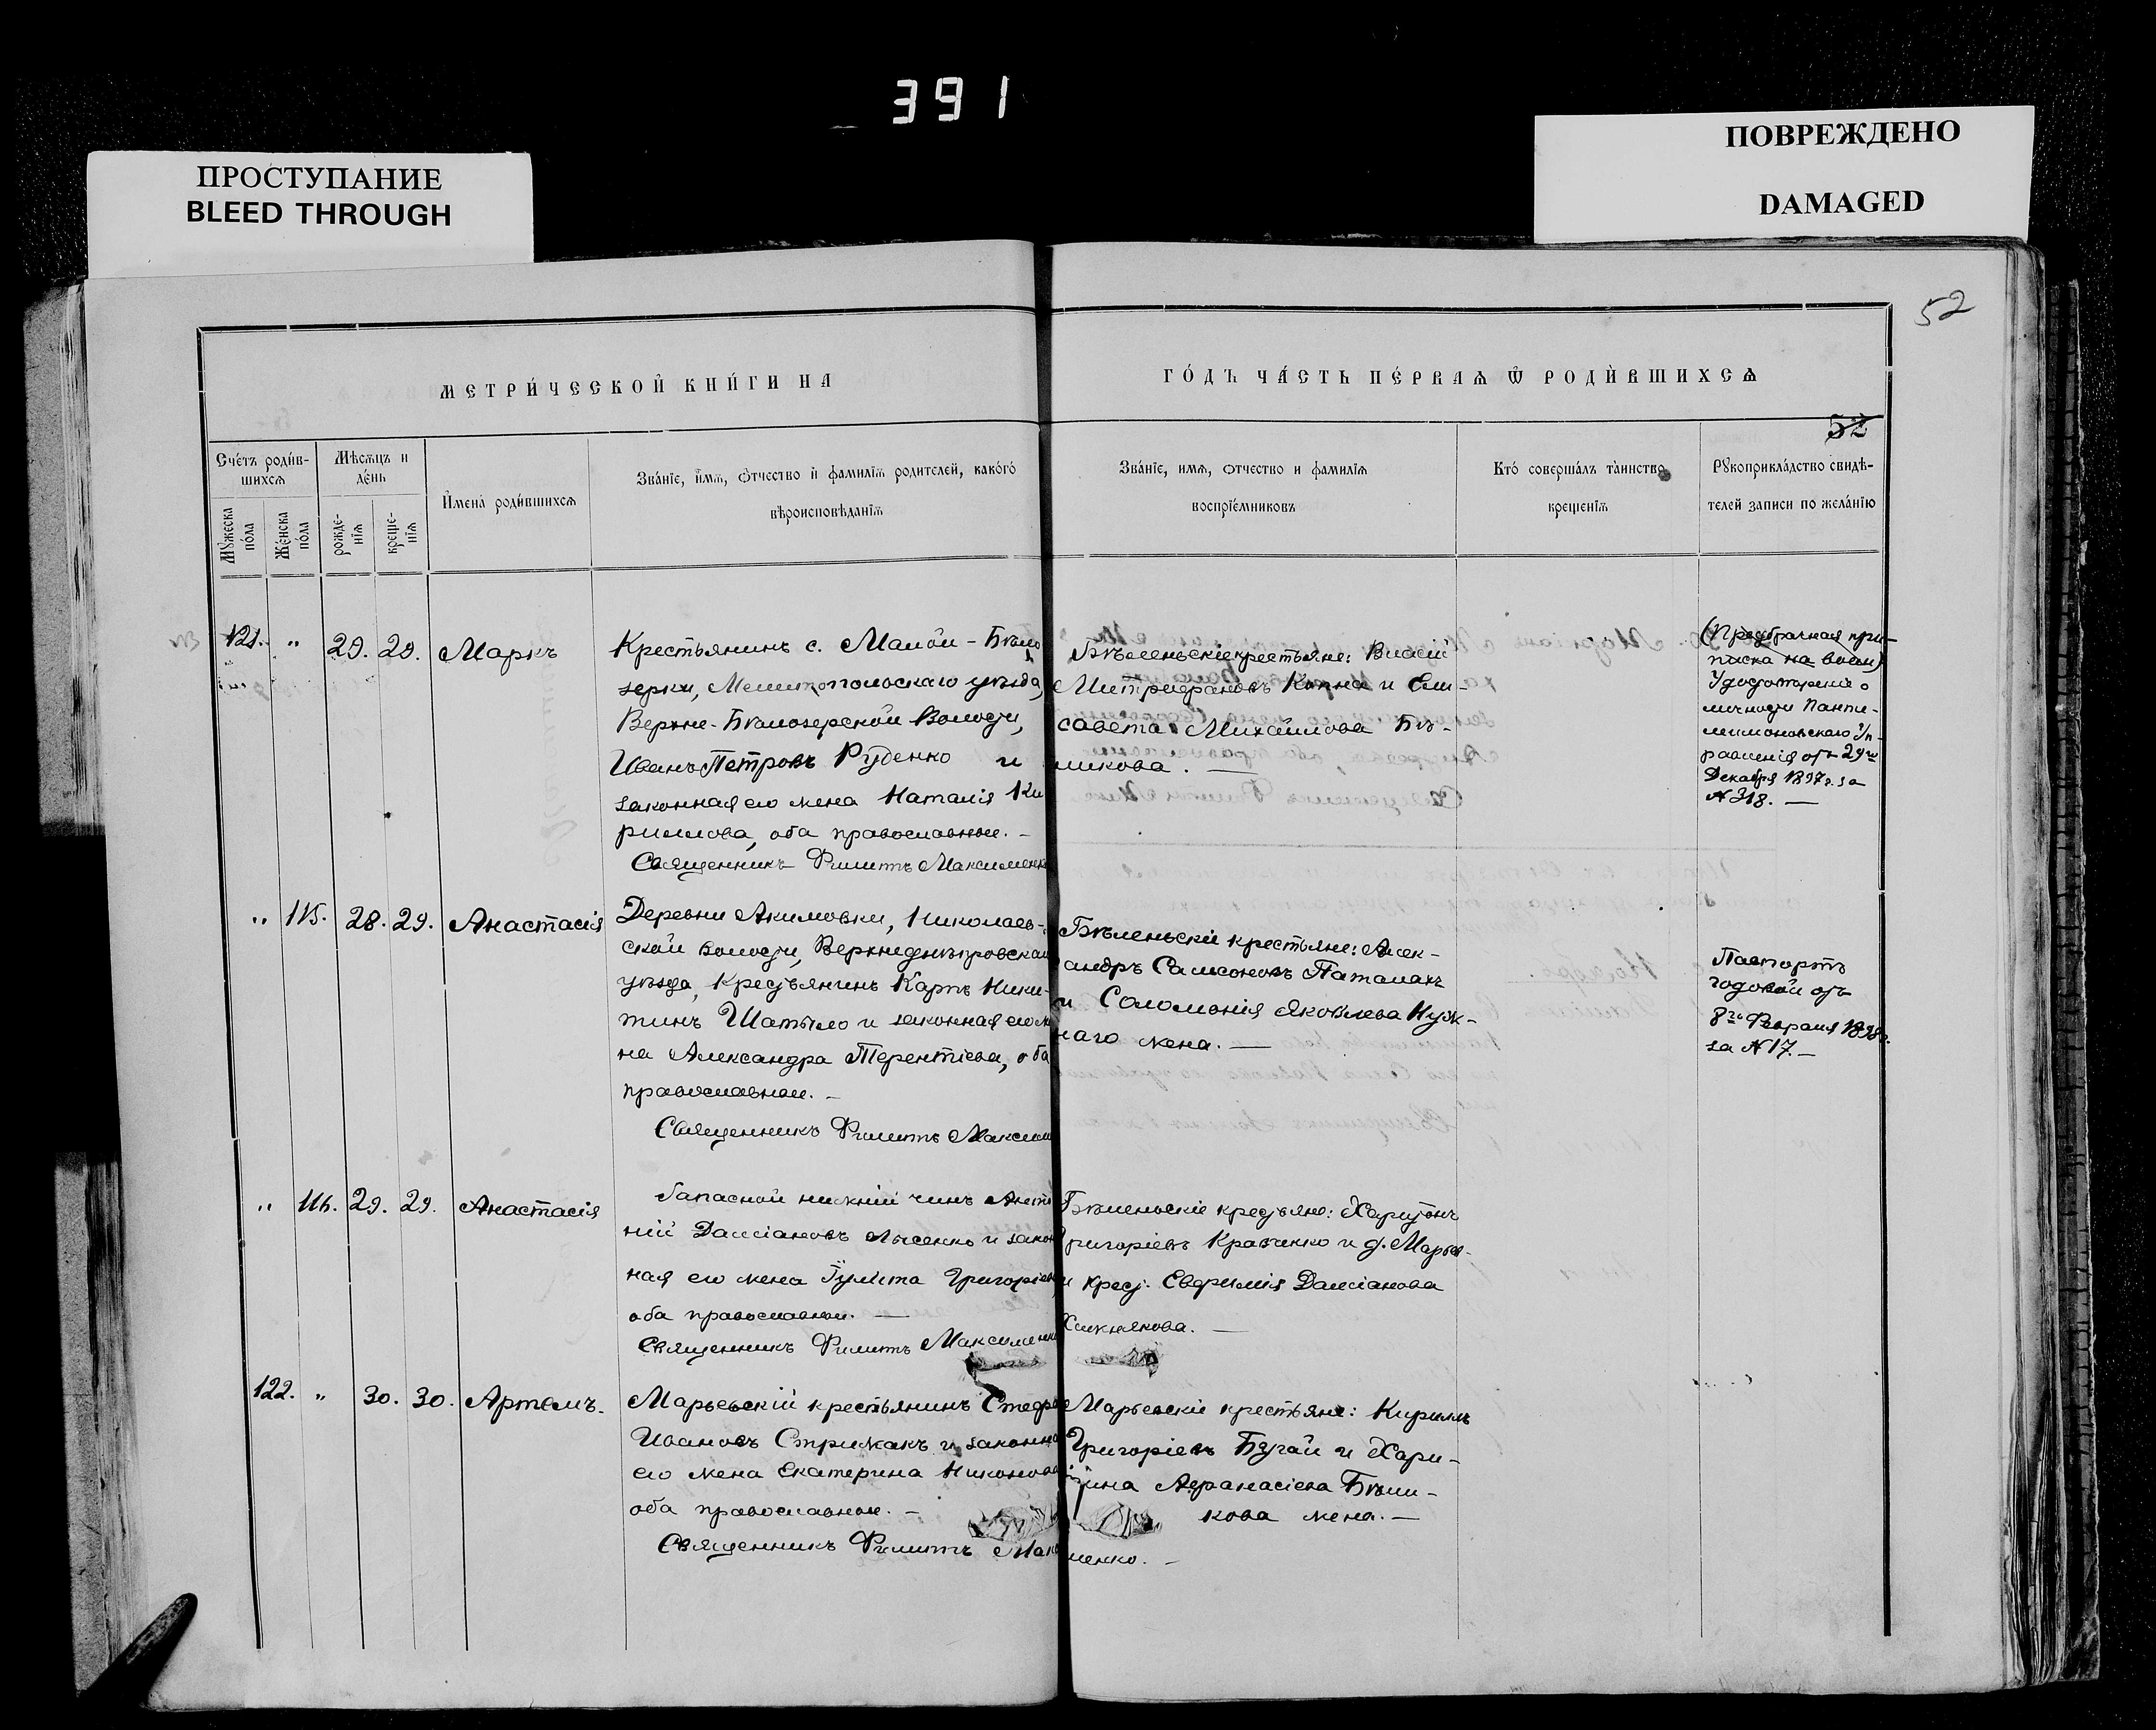 391
ПРОСТУПАНИЕ
BLEED THROUGH
ПОВРЕЖДЕНО
DAMAGED
52
МЕТРИ́ЧЕСКОЙ КНИ́ГИ НА
ГО́ДЪ ЧА́СТЬ ПЕ́РВАѦ Ѿ РОДИ́ВШИХСѦ
52
Сче́тъ роди́в-
шихсѧ
Мѣсѧцъ и
де́нь
Мꙋ́жеска
по́ла
Же́нска
по́ла
рожде-
нїѧ
креще-
нїѧ
И҆мена̀ роди́вшихсѧ
Зва́нїе, и҆́мѧ, ѻ҆́тчество и҆ фамилїѧ родителей, како́гѡ
вѣроисповѣданїѧ
Зва́нїе, имѧ, ѻтчество и фамилїѧ
воспрїе́мниковъ
Кто̀ соверша́лъ та̀инство
крещенїѧ
Рꙋкоприкла́дство свидѣ-
телей записи по жела́нїю
121. „ 29. 29. Маркъ
Крестьянинъ с. Малой-Бѣло
зерки, Мелитопольскаго уѣзда,
Верхне-Бѣлозерской Волости,
Иванъ Петровъ Руденко и
законная его жена Наталія Ки
риллова, оба православные. –
Священникъ Филиппъ Максименко
Бѣленьскіе крестьяне: Власій
Митрофановъ Копна и Ели-
савета Михайлова Бѣ-
ликова. —
(Предбрачная при-
писка на воли)
Удостовѣреніе о
личности Панте-
леимоновскаго Уп-
равленія отъ 29го
Декабря 1897 г. за
№ 318. —
„ 115. 28. 29. Анастасія
Деревни Акимовки, Николаев-
ской волости, Верхнеднѣпровскаго
уѣзда, крестьянинъ Карпъ Ники-
тинъ Шатыло и законная его же
на Александра Терентіева, оба
православные. –
Священникъ Филиппъ Максим
Бѣленьскіе крестьяне: Алек-
андръ Самсоновъ Паталахъ
и Соломонія Яковлева Нуж-
наго жена. —
Паспортъ
годовой отъ
8го Февраля 1898 г.
за № 17. —
„ 116. 29. 29. Анастасія
Запасной нижній чинъ Анто
ній Даміановъ Лысенко и закон
ная его жена Іулитта Григоріева
оба православные. —
Священникъ Филиппъ Максименко
Бѣленьскіе крестьяне: Харитонъ
Григоріевъ Кравченко и д. Марьев-
и крест. Евфимія Даміанова
122. „ 30. 30. Артемъ.
Марьевскій крестьянинъ Стефа
Ивановъ Стрижакъ и законна
его жена Екатерина Никонова
оба православные. –
Священникъ Филиппъ Макси
менко. –
Марьевскіе крестьяне: Кириллъ
Григоріевъ Бугай и Хари-
тина Аѳанасіева Бѣли-
кова жена. —